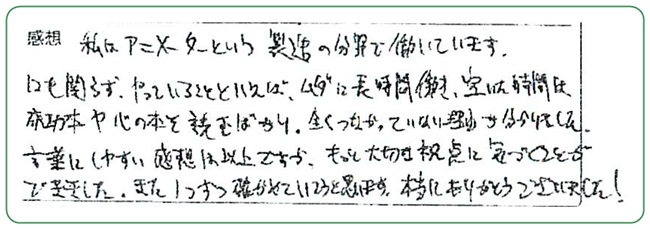 感想 私はアニメーターという製造の分野で働いています。
にも関らず、やっていることといえば、ムダに長時間働き、空いた時間は
成功本や心の本を読むばかり。全くつながっていない理由が分かりました。
言葉にしやすい感想は以上ですが、もっと大切な視点に気づくことが
できました。また1つずつ確かめていこうと思います。本当にありがとうございました!